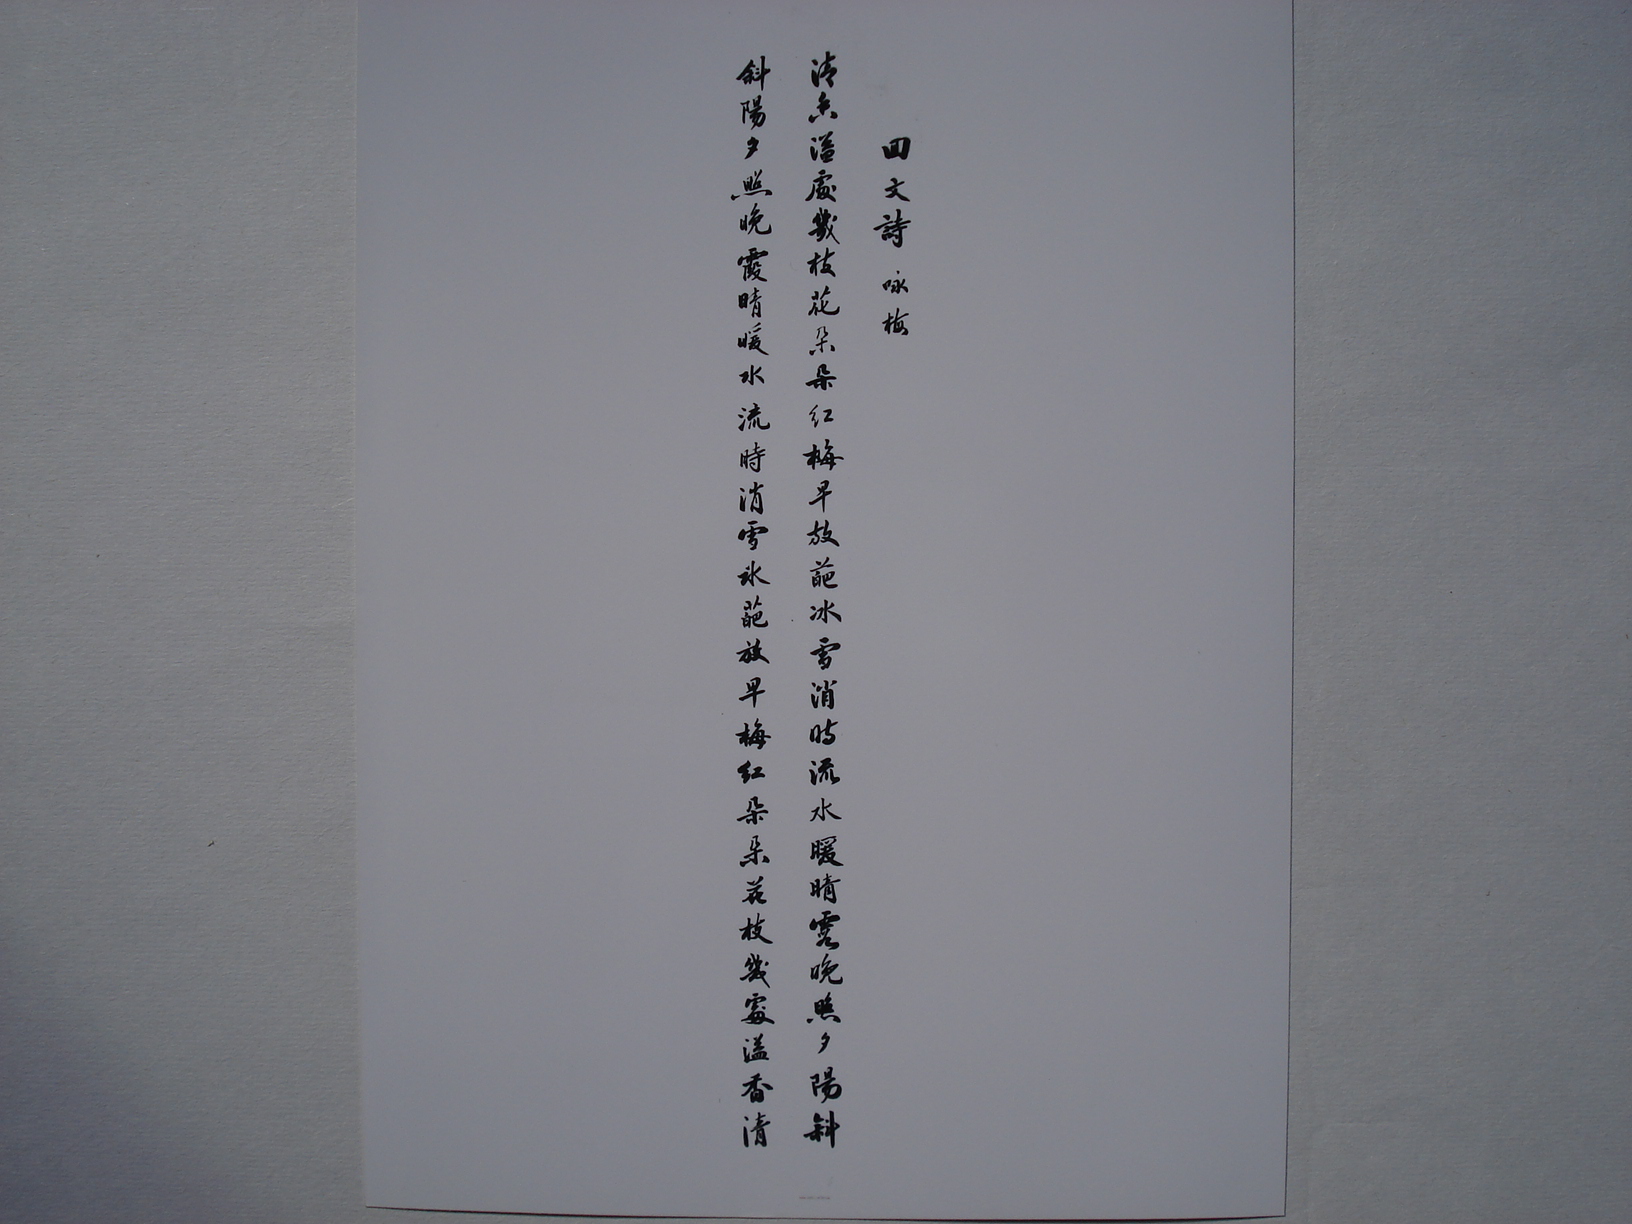 回文詩 咏梅
清香溢處幾枝花朵朵紅梅早放葩冰雪消時流水暖晴霞晚照夕陽斜
斜陽夕照晚霞晴暖水流時消雪冰葩放早梅紅朵朵花枝幾處溢香清